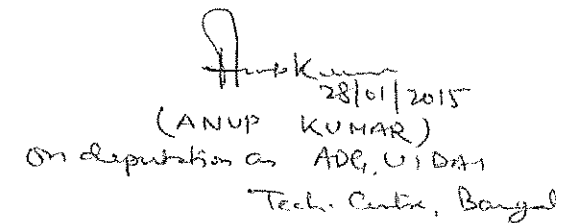 Anup Kumar
28/01/2015
(ANUP KUMAR)
on deputation as ADG, UIDAI
Tech. Centre, Bangal